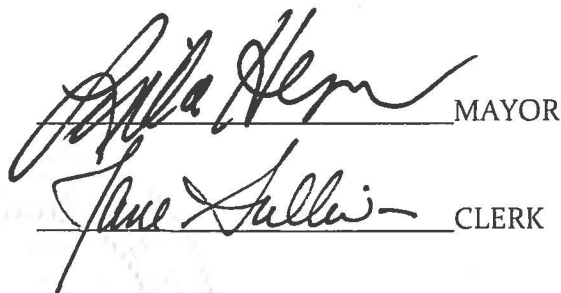 MAYOR
Jane Sullivan CLERK